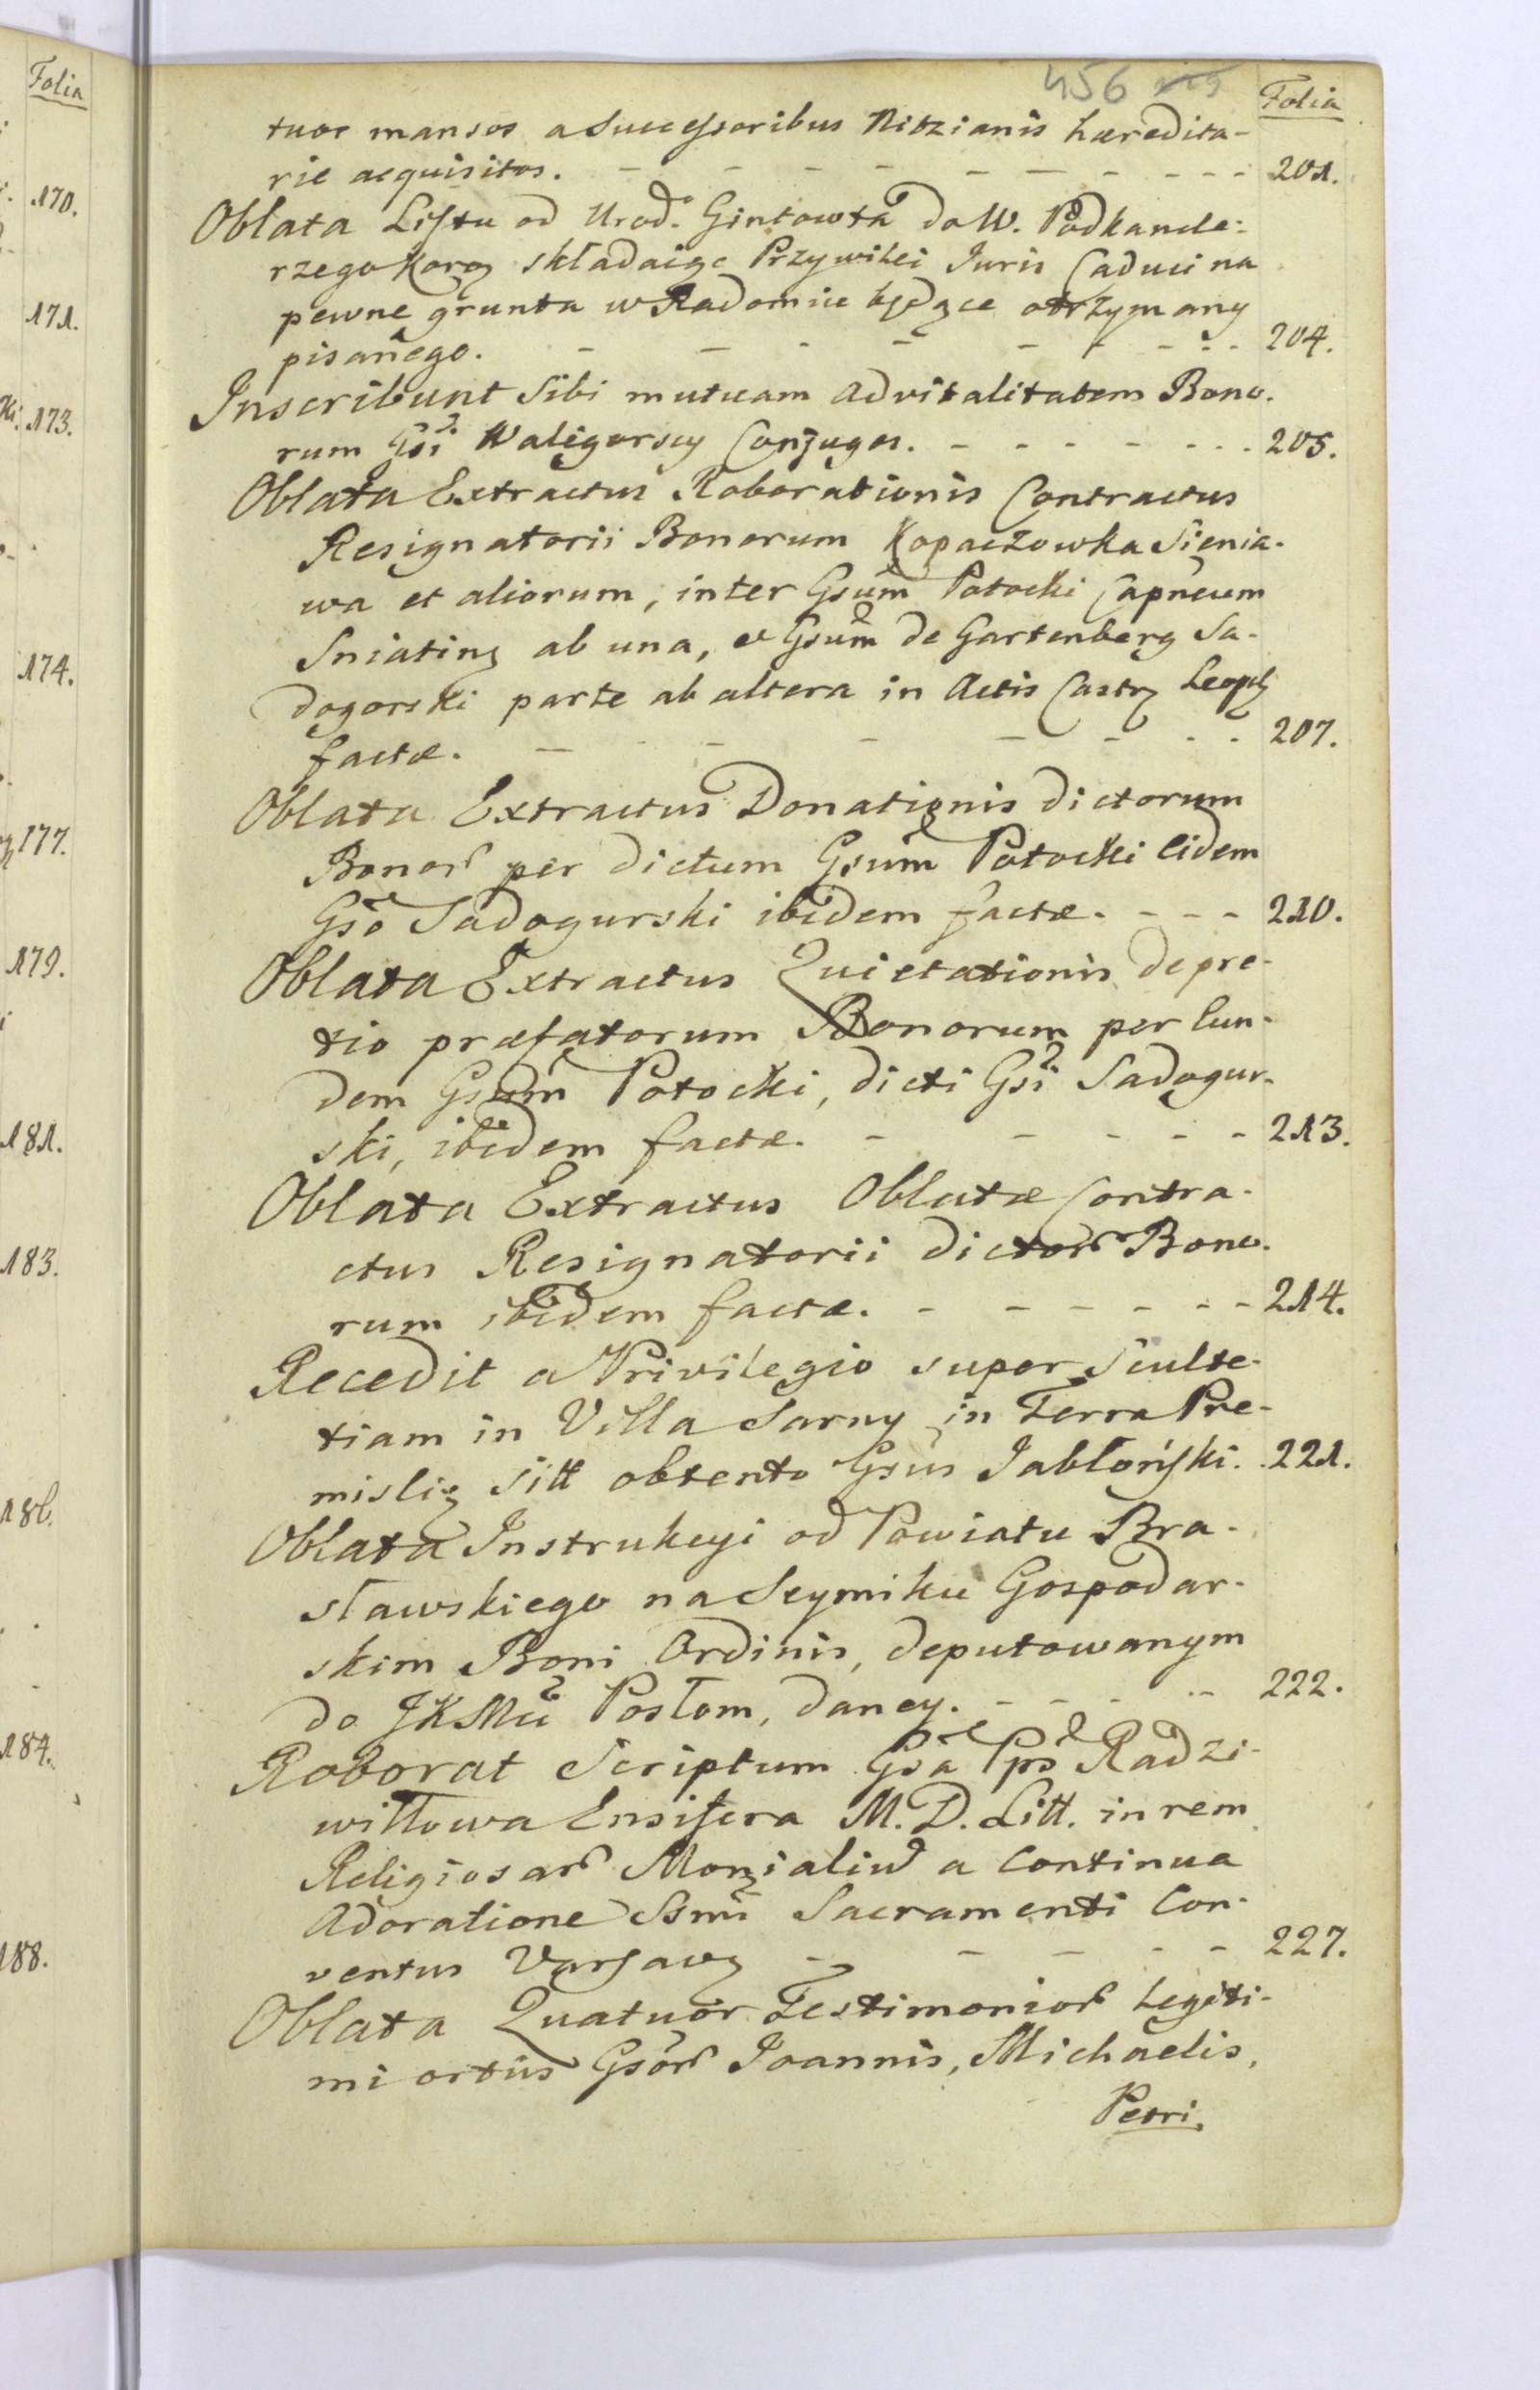 Folia
170.
171.
173.
174.
177.
179.
181.
183.
186.
184.
188.
456
Folia
tuor mansos a Successoribus Nitzianis hæredita-
rie acquisitos. - - - - - - - - - 201.
Oblata Listu od Urod. Gintowta do W. Podkancle-
rzego Korog składaiąc Przywilei Juris Caduci na
pewne grunta w Radomiu będące otrzymany
pisanego. - - - - - - - - - 204.
Inscribunt Sibi mutuam advitalitatem Bono-
rum Gsi Waligorscy Conjuges. - - - - - - - 205.
Oblata Extractus Roborationis Contractus
Resignatorii Bonorum Kopaczowka Sienia-
wa et aliorum, inter Gsum Potocki Capneum
Sniatinz ab una, et Gsum de Gartenberg Sa-
dogorski parte ab altera in Actis Castrz Leoplz
factæ. - - - - - - - - 207.
Oblata Extractus Donationis dictorum
Bonor per dictum Gsum Potocki eidem
Gso Sadogurski ibidem factæ. - - - 210.
Oblata Extractus Quietationis de pre-
tio præfatorum Bonorum per Eun-
dem Gsum Potocki, dicti Gsi Sadogur-
ski, ibidem factæ. - - - - - - 213.
Oblata Extractus Oblatæ Contra-
ctus Resignatorii dictor Bono-
rum ibidem factæ. - - - - - - - 214.
Recedit a Privilegio super Sculte-
tiam in Villa Sarny in Terra Pre-
misliz sitt obtento Gsus Jabłoński. 221.
Oblata Instrukcyi od Powiatu Bra-
sławskiego na Seymiku Gospodar-
skim Boni Ordinis, deputowanym
do JKMci Posłom, daney. - - - - - 222.
Roborat Scriptum Gsa Pps Radzi-
wiłłowa Ensifera M. D. Litt. in rem
Religiosar Monialiu a Continua
Adoratione Ssmi Sacramenti Con-
ventus Varsavz - - - - - 227.
Oblata Quatuor Testimonior Legiti-
mi ortus Gsor Joannis, Michaelis,
Petri,